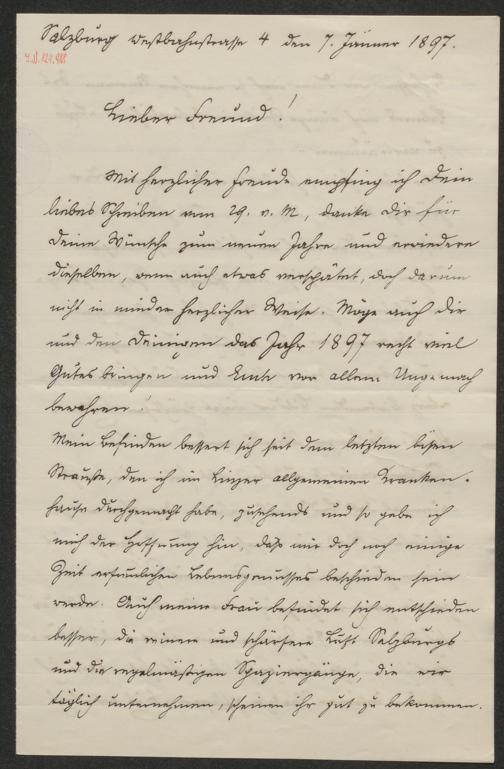 Salzburg Westbahnstrasse 4 den 7. Jänner 1897.
I.N. 129.988
Lieber Freund!
Mit herzlicher Freude empfing ich Dein
liebes Schreiben vom 29. v. M, danke Dir für
Deine Wünsche zum neuen Jahre und erwiedere
dieselben, wenn auch etwas verspätet, doch darum
nicht in minder herzlicher Weise. Möge auch Dir
und den Deinigen das Jahr 1897 recht viel
Gutes bringen und Euch vor allem Ungemach
bewahren!
Mein Befinden bessert sich seit dem letzten bösen
Strauße, den ich im Linzer allgemeinen Kranken-
hause durchgemacht habe, zusehends und so gebe ich
mich der Hoffnung hin, daß mir doch noch einige
Zeit erfreulichen Lebensgenusses beschieden sein
werde. Auch meine Frau befindet sich entschieden
besser, die reinere und schärfere Luft Salzburgs
und die regelmäßigen Spaziergänge, die wir
täglich unternehmen, scheinen ihr gut zu bekommen.